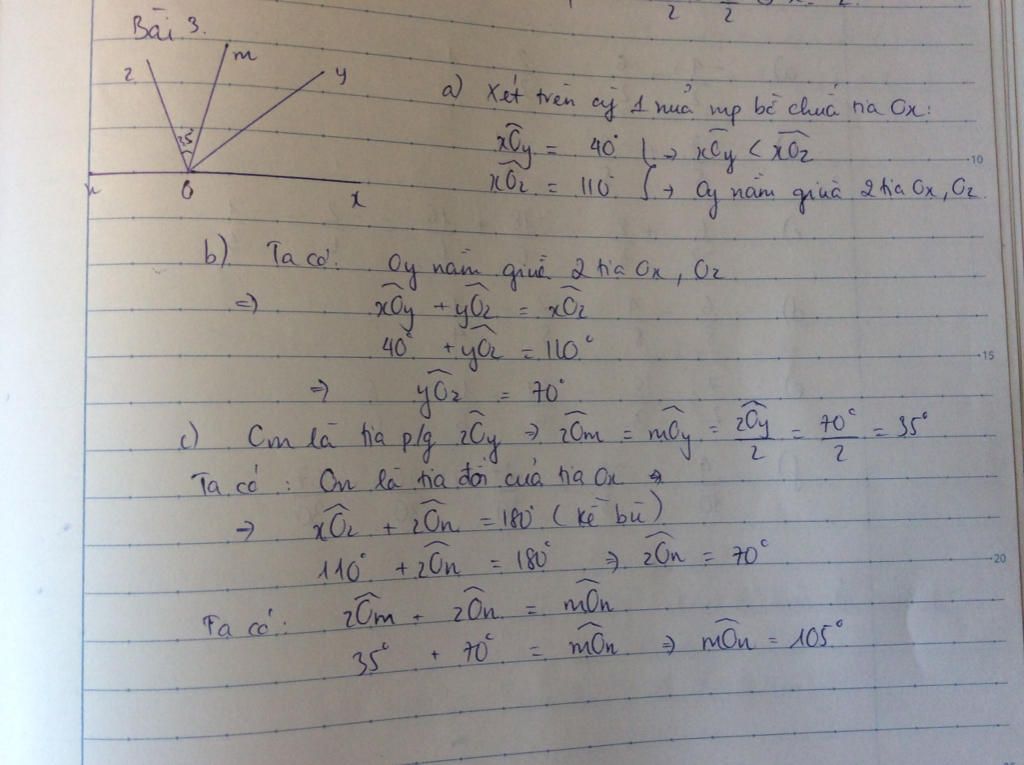 Bài 3.
z
m
y
35
n
O
x
a) Xét trên cg 1 nuả mp bờ chuá tia Ox:
xOy = 40° } → xOy < xOz
xOz = 110° } → Oy nằm giuã 2 tia Ox, Oz
b) Ta có: Oy nằm giuã 2 tia Ox, Oz
=> xOy + yOz = xOz
40° + yOz = 110°
=> yOz = 70°
c) Om là tia p/g zOy => zOm = mOy = zOy/2 = 70°/2 = 35°
Ta có: On là tia đối cuả tia Ox =>
=> xOz + zOn = 180° (kề bù)
110° + zOn = 180° => zOn = 70°
Ta có: zOm + zOn = mOn
35° + 70° = mOn => mOn = 105°
10
15
20